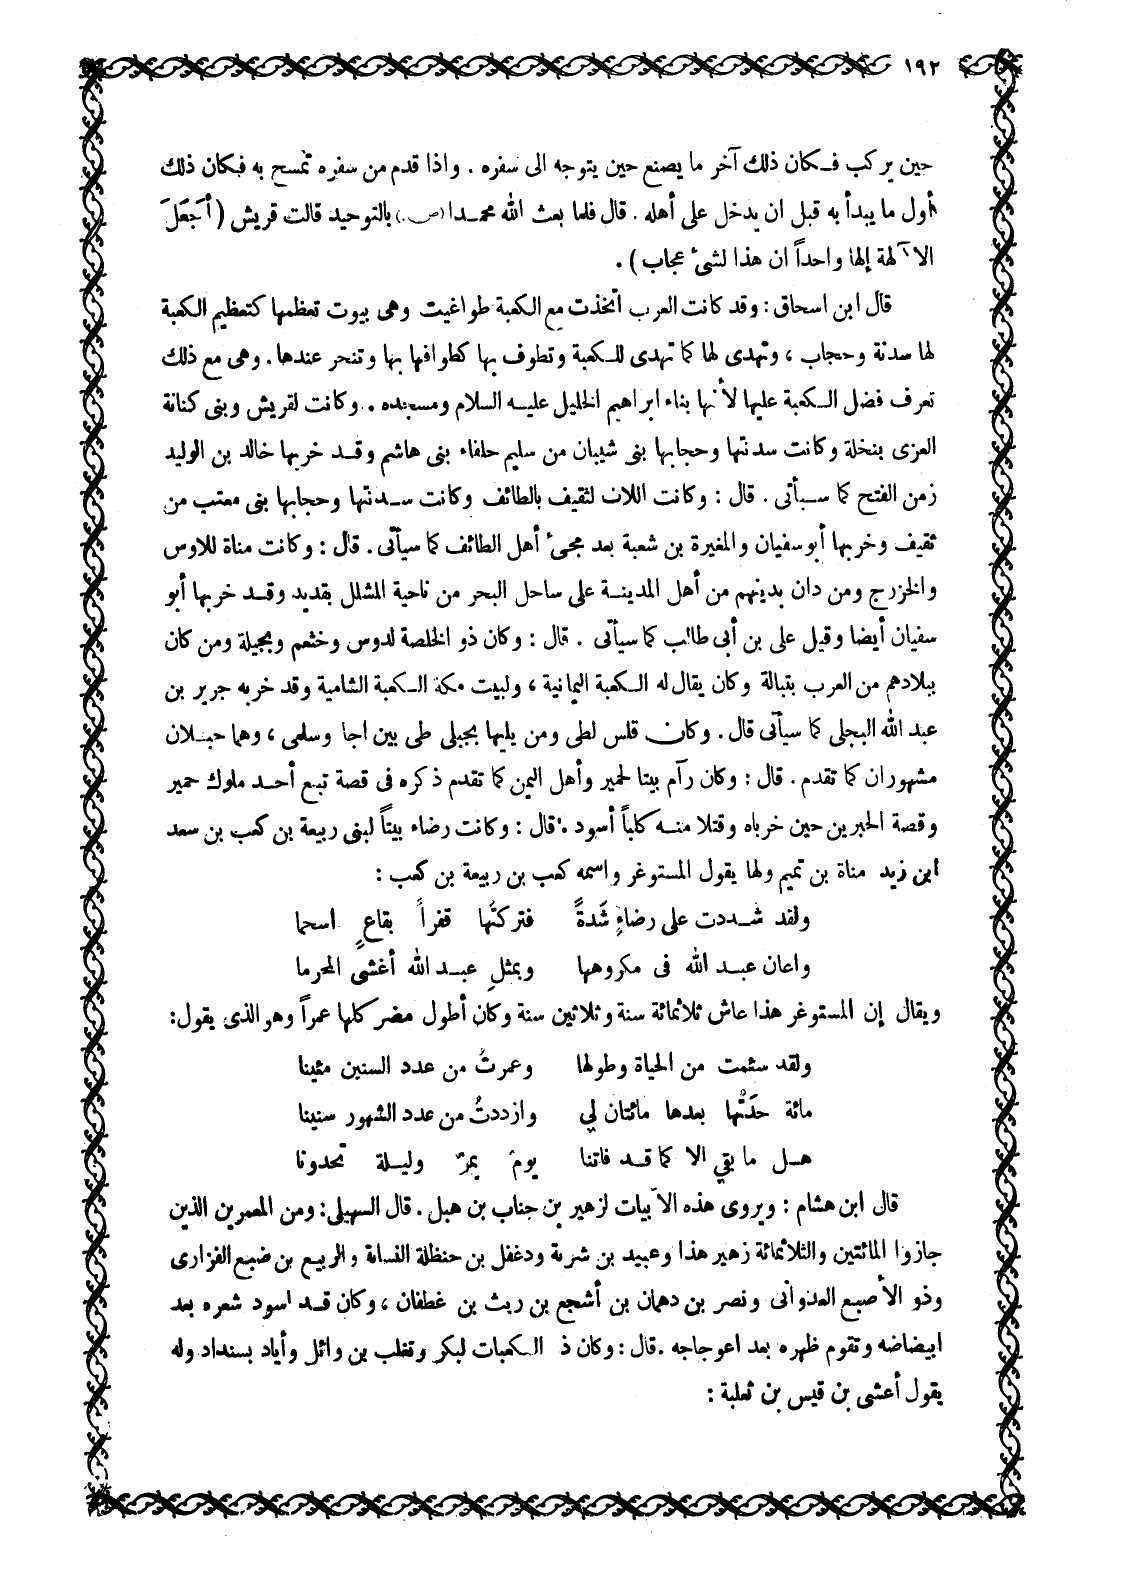 ١٩٢
حين يركب فكان ذلك آخر ما يصنع حين يتوجه الى سفره . واذا قدم من سفره تمسح به فكان ذلك
أول ما يبدأ به قبل ان يدخل على أهله . قال فلما بعث الله محمدا (ص) بالتوحيد قالت قريش ( أجَعَلَ
الآلهة إلها واحداً ان هذا لشئ عجاب ) .
قال ابن اسحاق : وقد كانت العرب اتخذت مع الكعبة طواغيت وهى بيوت تعظمها كتعظيم الكعبة
لها سدنة وحجاب ، وتهدى لها كما تهدى للكعبة وتطوف بها كطوافها بها وتنحر عندها . وهى مع ذلك
تعرف فضل الكعبة عليها لأنها بناء ابراهيم الخليل عليه السلام ومسجده . وكانت لقريش وبنى كنانة
العزى بنخلة وكانت سدنتها وحجابها بنى شيبان من سليم حلفاء بنى هاشم وقد خربها خالد بن الوليد
زمن الفتح كما سيأتى . قال : وكانت اللات لثقيف بالطائف وكانت سدنتها وحجابها بنى معتب من
ثقيف وخربها أبو سفيان والمغيرة بن شعبة بعد مجئ أهل الطائف كما سيأتى . قال : وكانت مناة للاوس
والخزرج ومن دان بدينهم من أهل المدينة على ساحل البحر من ناحية المشلل بقديد وقد خربها أبو
سفيان أيضا وقيل على بن أبى طالب كما سيأتى . قال : وكان ذو الخلصة لدوس وخثعم وبجيلة ومن كان
ببلادهم من العرب بتبالة وكان يقال له الكعبة اليمانية ، ولبيت مكة الكعبة الشامية وقد خربه جرير بن
عبد الله البجلى كما سيأتى قال . وكان قلس لطى ومن يليها بجبلى طى بين اجا وسلمى ، وهما جبلان
مشهوران كما تقدم . قال : وكان رآم بيتا لحمير وأهل اليمن كما تقدم ذكره فى قصة تبع أحد ملوك حمير
وقصة الحبرين حين خرباه وقتلا منه كلباً أسود . قال : وكانت رضاء بيتاً لبنى ربيعة بن كعب بن سعد
ابن زيد مناة بن تميم ولها يقول المستوغر واسمه كعب بن ربيعة بن كعب :
ولقد شددت على رضاءٍ شَدةً فتركتُها قفراً بقاعٍ اسحما
واعان عبد الله فى مكروهها وبمثلِ عبد الله أغشى المحرما
ويقال إن المستوغر هذا عاش ثلاثمائة سنة وثلاثين سنة وكان أطول مضر كلها عمراً وهو الذى يقول :
ولقد سئمت من الحياة وطولها وعمرتُ من عدد السنين مئينا
مائة حَدَتْها بعدها مائتان لي وازددتُ من عدد الشهور سنينا
هل ما بقي الا كما قد فاتنا يومٌ يمرّ وليلة تحدونا
قال ابن هشام : ويروى هذه الأبيات لزهير بن جناب بن هبل . قال السهيلى : ومن المعمرين الذين
جازوا المائتين والثلاثمائة زهير هذا وعبيد بن شرية ودغفل بن حنظلة النسابة والربيع بن ضبع الفزارى
وذو الأصبع العدوانى ونصر بن دهمان بن أشجع بن ريث بن غطفان ، وكان قد اسود شعره بعد
ابيضاضه وتقوم ظهره بعد اعوجاجه . قال : وكان ذ الكعبات لبكر وتغلب بن وائل وأياد بسنداد وله
يقول أعشى بن قيس بن ثعلبة :